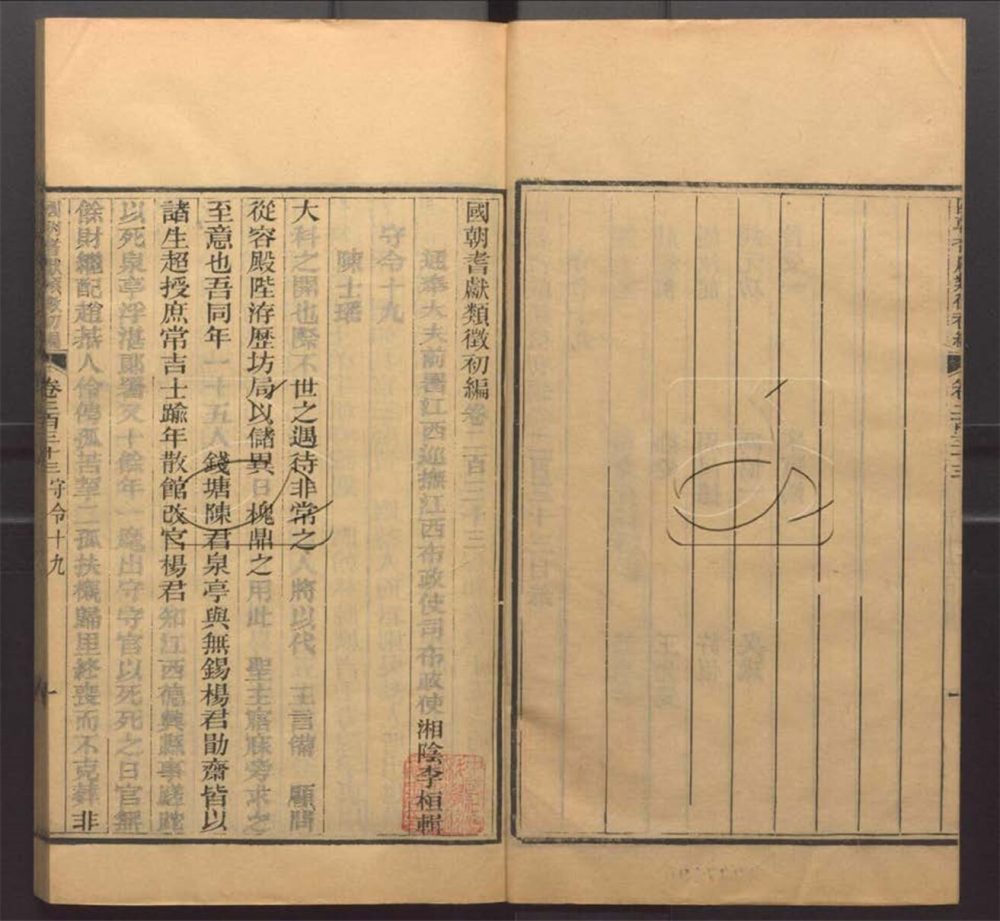 國朝耆獻類徵初編卷二百三十三
通奉大夫前署江西巡撫江西布政使司布政使湘陰李桓輯
守令十九
陳士璠
大科之開也際不世之遇待非常之人將以代 王言備 顧問
從容殿陛洊歷坊局以儲異日槐鼎之用此 聖主寤寐旁求之
至意也吾同年一十五人錢塘陳君泉亭與無錫楊君勖齋皆以
諸生超授庶常吉士踰年散館改官楊君知江西德興縣事蹉跎
以死泉亭浮湛郎署又十餘年一麾出守守官以死死之日官無
餘財繼配趙恭人伶俜孤苦挈二孤扶櫬歸里終喪而不克葬非
卷二百三十三守令十九
一